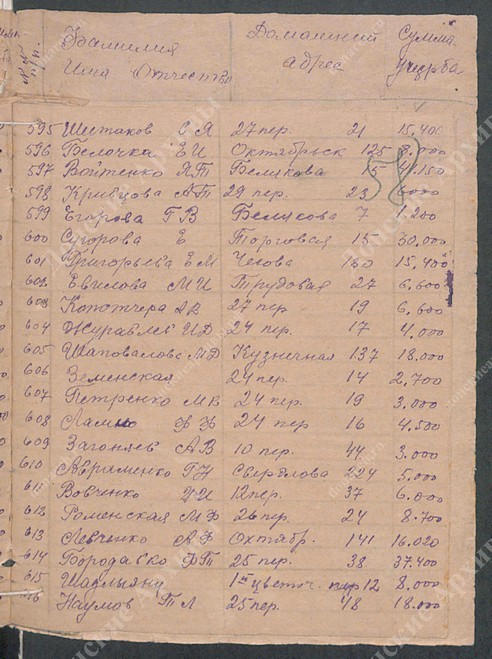 №№ п/п. Фамилия Имя Отчество Домашний адрес Сумма ущерба
595 Шестаков С Я 27 пер. 21 15.400
596 Белочка Е И Октябрьск 125 8.000
597 Войтенко А Т Белякова 15 4.150
598 Кривцова А Т 29 пер. 23 6000
599 Егорова Г В Белякова 7 1.200
600 Е Торговая 15 30.000
601 Григорьева Е М Чехова 60 15.400
602 М И Трудовая 27 6.600
603 А В 27 пер 19 6.600
604 Журавлев И Д 24 пер. 17 4.000
605 Шаповалова М Д Кузнечная 137 18.000
606 Земенская 24 пер. 14 2.700
607 Петренко М К 24 пер. 19 3.000
608 24 пер 16 4.500
609 А В 10 пер. 44 3.000
610 Авраменко Г Н Свердлова 224 5.000
611 Вовченко 12 пер. 37 6.000
612 Роменская М Ф 26 пер. 24 8.700
613 Левченко А Ф Октябр. 141 16.020
614 Бородавко Ф Т 25 пер. 38 37.400
615 1ый цветоч. пер 12 8.000
616 Наумов Т Л 25 пер. 48 18.000